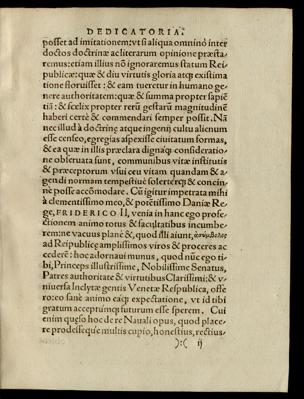 DEDICATORIA.
posset ad imitationem: vt si aliqua omnino inter
doctos doctrinæ ac literarum opinione præsta-
remus: etiam illius nō ignoraremus statum Rei-
publicæ: quæ & diu virtutis gloria atq; existima
tione floruisset: & eam tueretur in humano ge-
nere authoritatem: quæ & summa propter sapiēn
tiā: & fœlix propter rerū gestarū magnitudinē
haberi certè & commendari semper possit. Nā
nec illud à doctrinę atque ingenij cultu alienum
esse censeo, egregias aspexisse ciuitatum formas,
& ea quæ in illis præclara dignaq; consideratio-
ne obseruata sunt, communibus vitæ institutis
& præceptorum vsui ceu vitam quandam & a-
gendi normam tempestiuè solerterq; & concin-
nè posse accōmodare. Cū igitur impetrata mihi
à clementissimo meo, & potētissimo Daniæ Re-
ge, FRIDERICO II, venia in hanc ego profe-
ctionem animo totus & facultatibus incumbe-
rem: ne vacuus planè &, quod illi aiunt,
ad Reipublicę amplissimos viros & proceres ac
cederē: hoc adornaui munus, quod nūc ego ti-
bi, Princeps illustrissime, Nobilissime Senatus,
Patres authoritate & virtutibus Clarissimi; & v-
niuersa Inclytæ gentis Venetæ Respublica, offe
ro: eo sanè animo eaq; expectatione, vt id tibi
gratum acceptumq; futurum esse sperem. Cui
enim quęso hoc de re Nauali opus, quod place-
re prodesseque multis cupio, honestius, rectius
):( ij